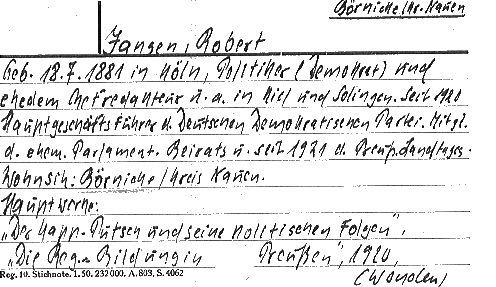 Börnicke/Kr. Nauen
Jansen, Robert
Geb. 18.7.1881 in Köln, Politiker (Demokrat) und
ehedem Chefredakteur u. a. in Kiel und Solingen. Seit 1920
Hauptgeschäftsführer d. Deutschen Demokratischen Partei. Mitgl.
d. ehem. Parlament. Beirats u. seit 1921 d. Preuß. Landtages.
Wohnsitz: Börnicke/Kreis Nauen.
Hauptwerke:
„Der Kapp-Putsch und seine politischen Folgen",
„Die Reg.-Bildung in Preußen", 1920,
Reg. 10. Stichnote. 1. 50. 232000. A. 803, S. 4062